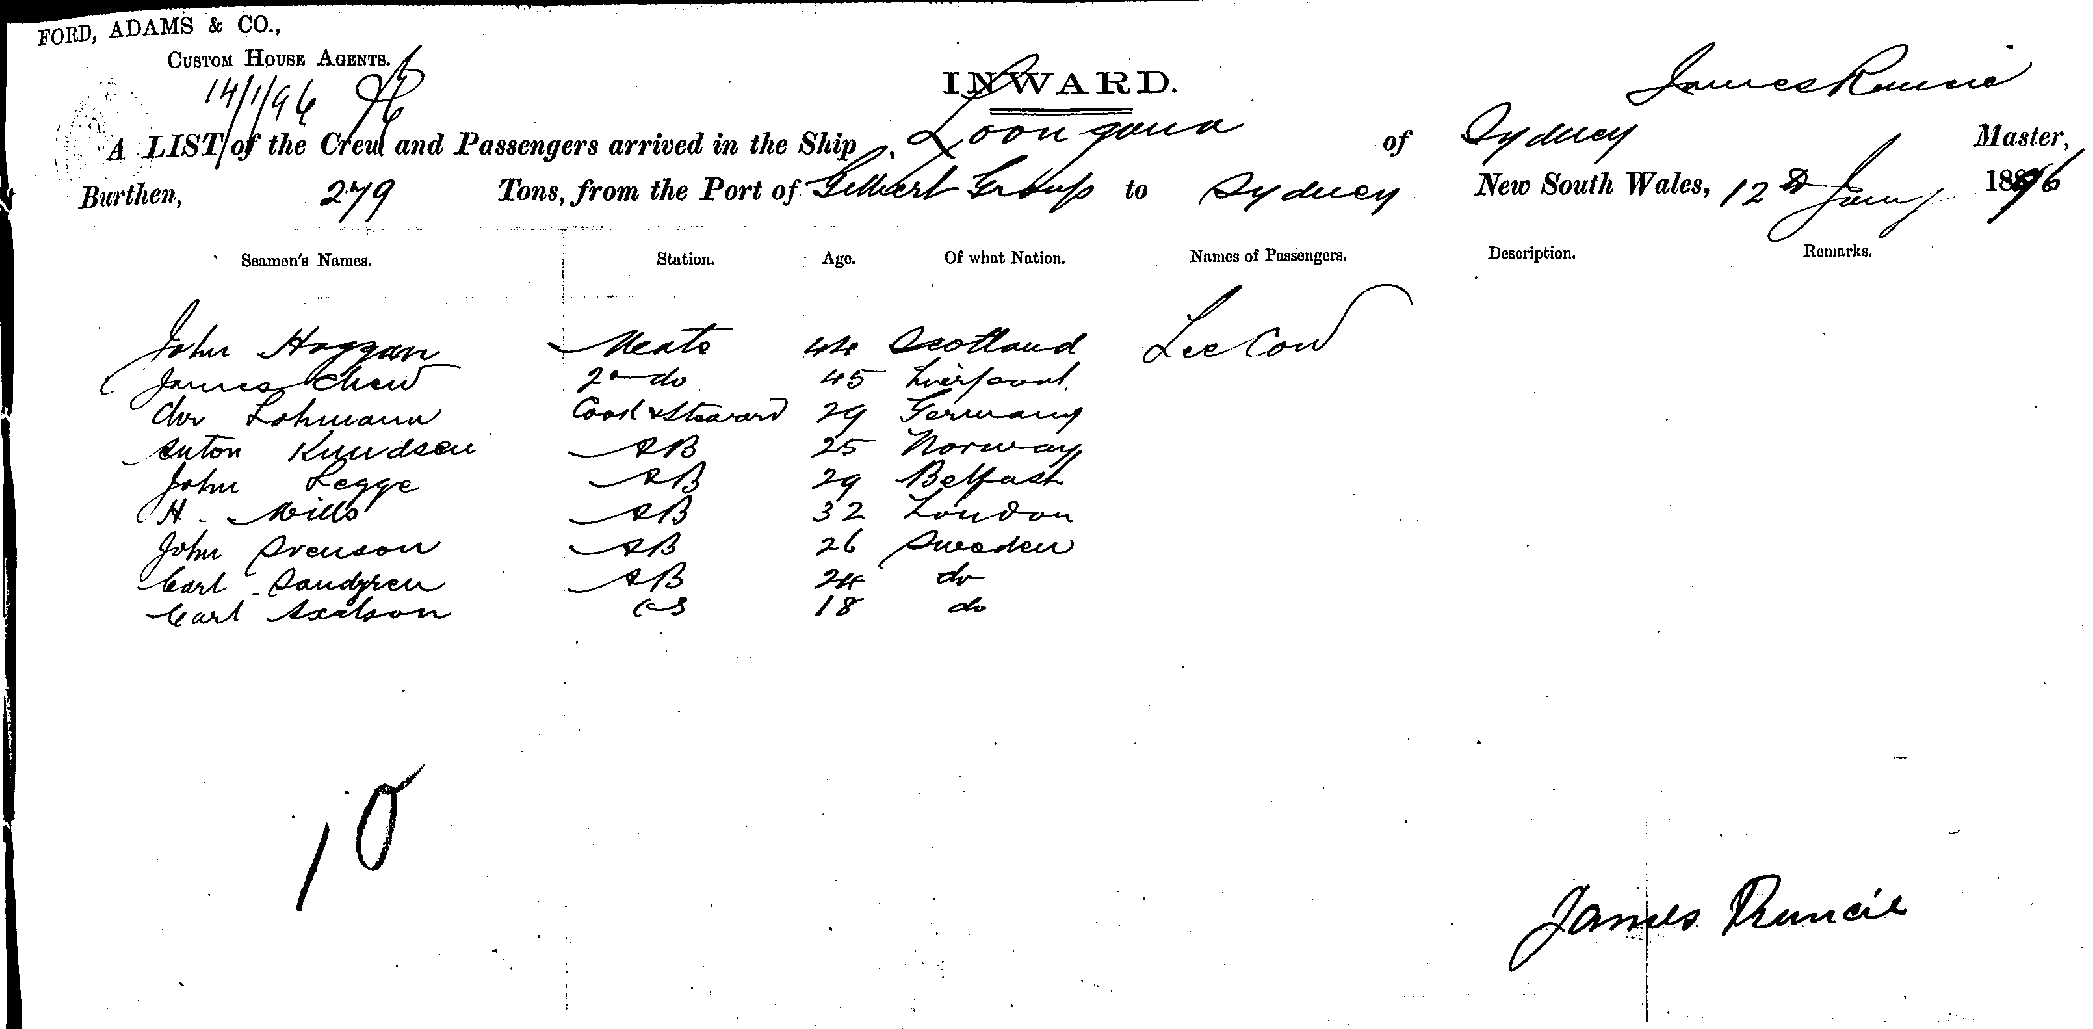 FORD, ADAMS & CO.,
CUSTOM HOUSE AGENTS.
14/1/96
INWARD.
James Runcie
A LIST of the Crew and Passengers arrived in the Ship Loongana of Sydney Master,
Burthen, 279 Tons, from the Port of Gilbert Group to Sydney New South Wales, 12th Jany 1896
Seamen's Names. Station. Age. Of what Nation. Names of Passengers. Description. Remarks.
John Hoggan Mate 44 Scotland Lee Cow
James Chew 2nd do 45 Liverpool
Chr Lohmann Cook & Steward 29 Germany
Anton Knudsen AB 25 Norway
John Legge AB 29 Belfast
H. Mills AB 32 London
John Svenson AB 26 Sweden
Carl Sandgren AB 24 do
Carl Axelson OS 18 do
10
James Runcie